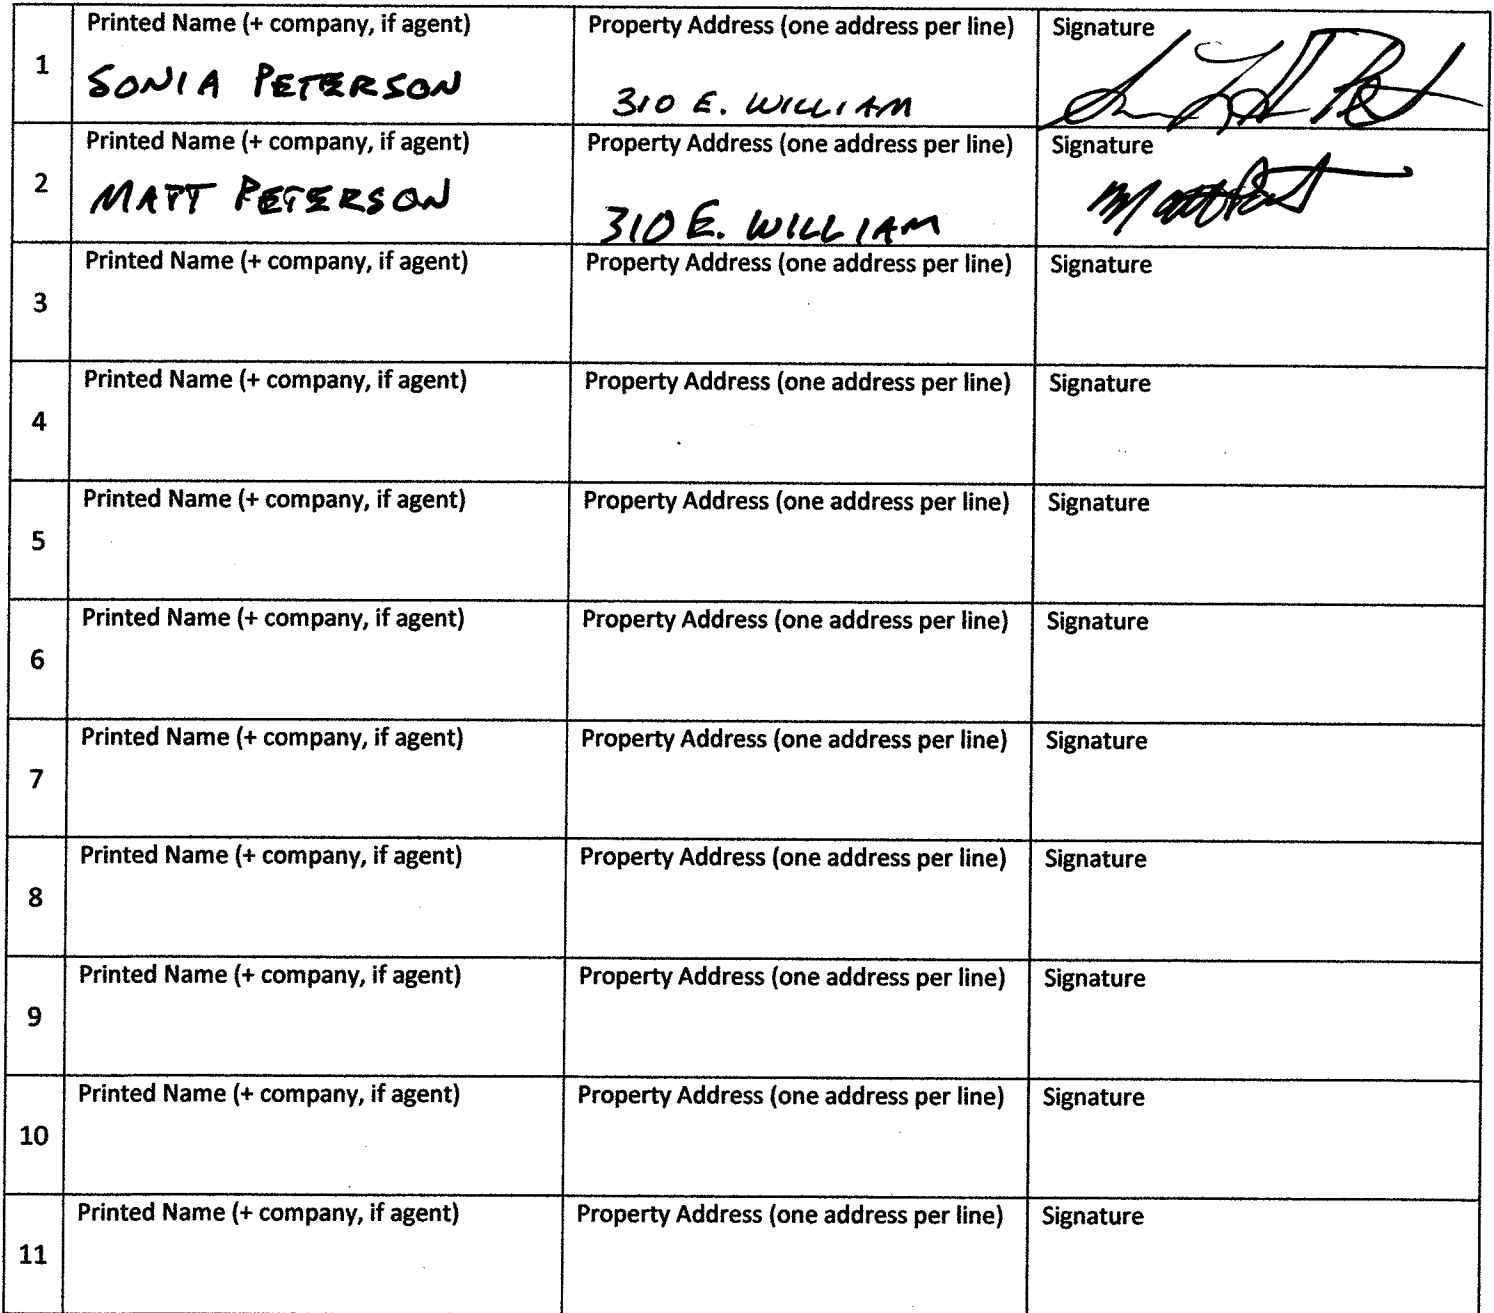 Printed Name (+ company, if agent) Property Address (one address per line) Signature
1 SONIA PETERSON 310 E. WILLIAM
Printed Name (+ company, if agent) Property Address (one address per line) Signature
2 MATT PETERSON 310 E. WILLIAM
Printed Name (+ company, if agent) Property Address (one address per line) Signature
3
Printed Name (+ company, if agent) Property Address (one address per line) Signature
4
Printed Name (+ company, if agent) Property Address (one address per line) Signature
5
Printed Name (+ company, if agent) Property Address (one address per line) Signature
6
Printed Name (+ company, if agent) Property Address (one address per line) Signature
7
Printed Name (+ company, if agent) Property Address (one address per line) Signature
8
Printed Name (+ company, if agent) Property Address (one address per line) Signature
9
Printed Name (+ company, if agent) Property Address (one address per line) Signature
10
Printed Name (+ company, if agent) Property Address (one address per line) Signature
11